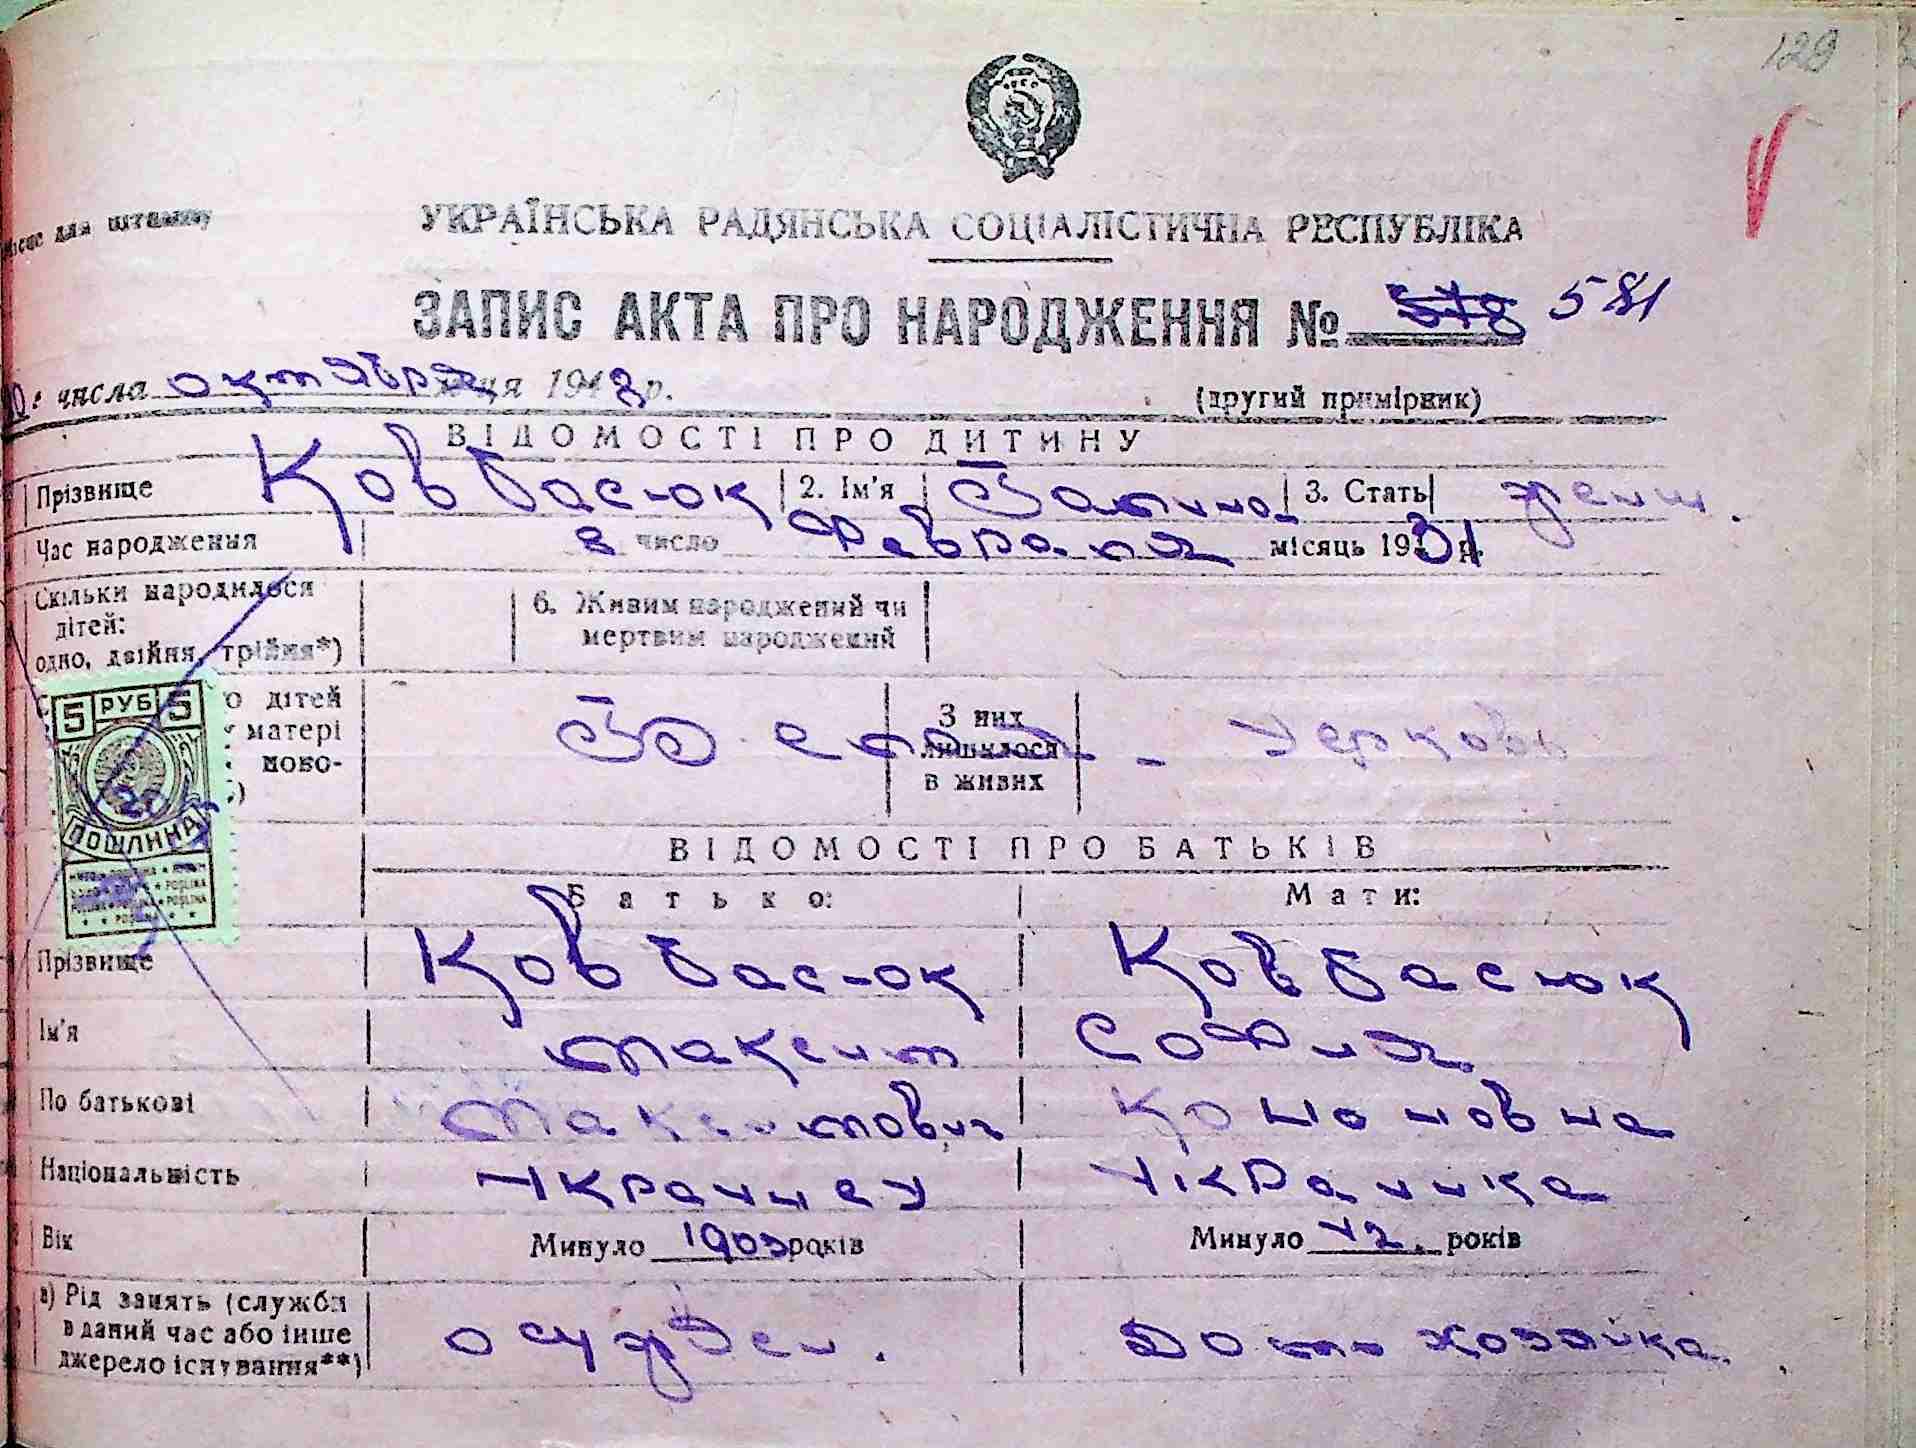 129
Місце для штампу
УКРАЇНСЬКА РАДЯНСЬКА СОЦІАЛІСТИЧНА РЕСПУБЛІКА
ЗАПИС АКТА ПРО НАРОДЖЕННЯ № 578 581
10 числа октября місяця 1948 р. (другий примірник)
ВІДОМОСТІ ПРО ДИТИНУ
Прізвище Ковбасюк 2. Ім'я Галина 3. Стать женш.
Час народження 8 число Февраля місяць 1931 р.
Скільки народилося дітей: одно, двійня, трійня*) 6. Живим народжений чи мертвим народжений
дітей
матері
ново-
З них лишилося в живих
5 РУБ 5
ПОШЛИНА
ВІДОМОСТІ ПРО БАТЬКІВ
Батько: Мати:
Прізвище Ковбасюк Ковбасюк
Ім'я Максим София
По батькові Максимович Кононовна
Національність Украинец Украинка
Вік Минуло 1903 років Минуло 42. років
а) Рід занять (служби в даний час або інше джерело існування**) осужден. Домохозяйка.